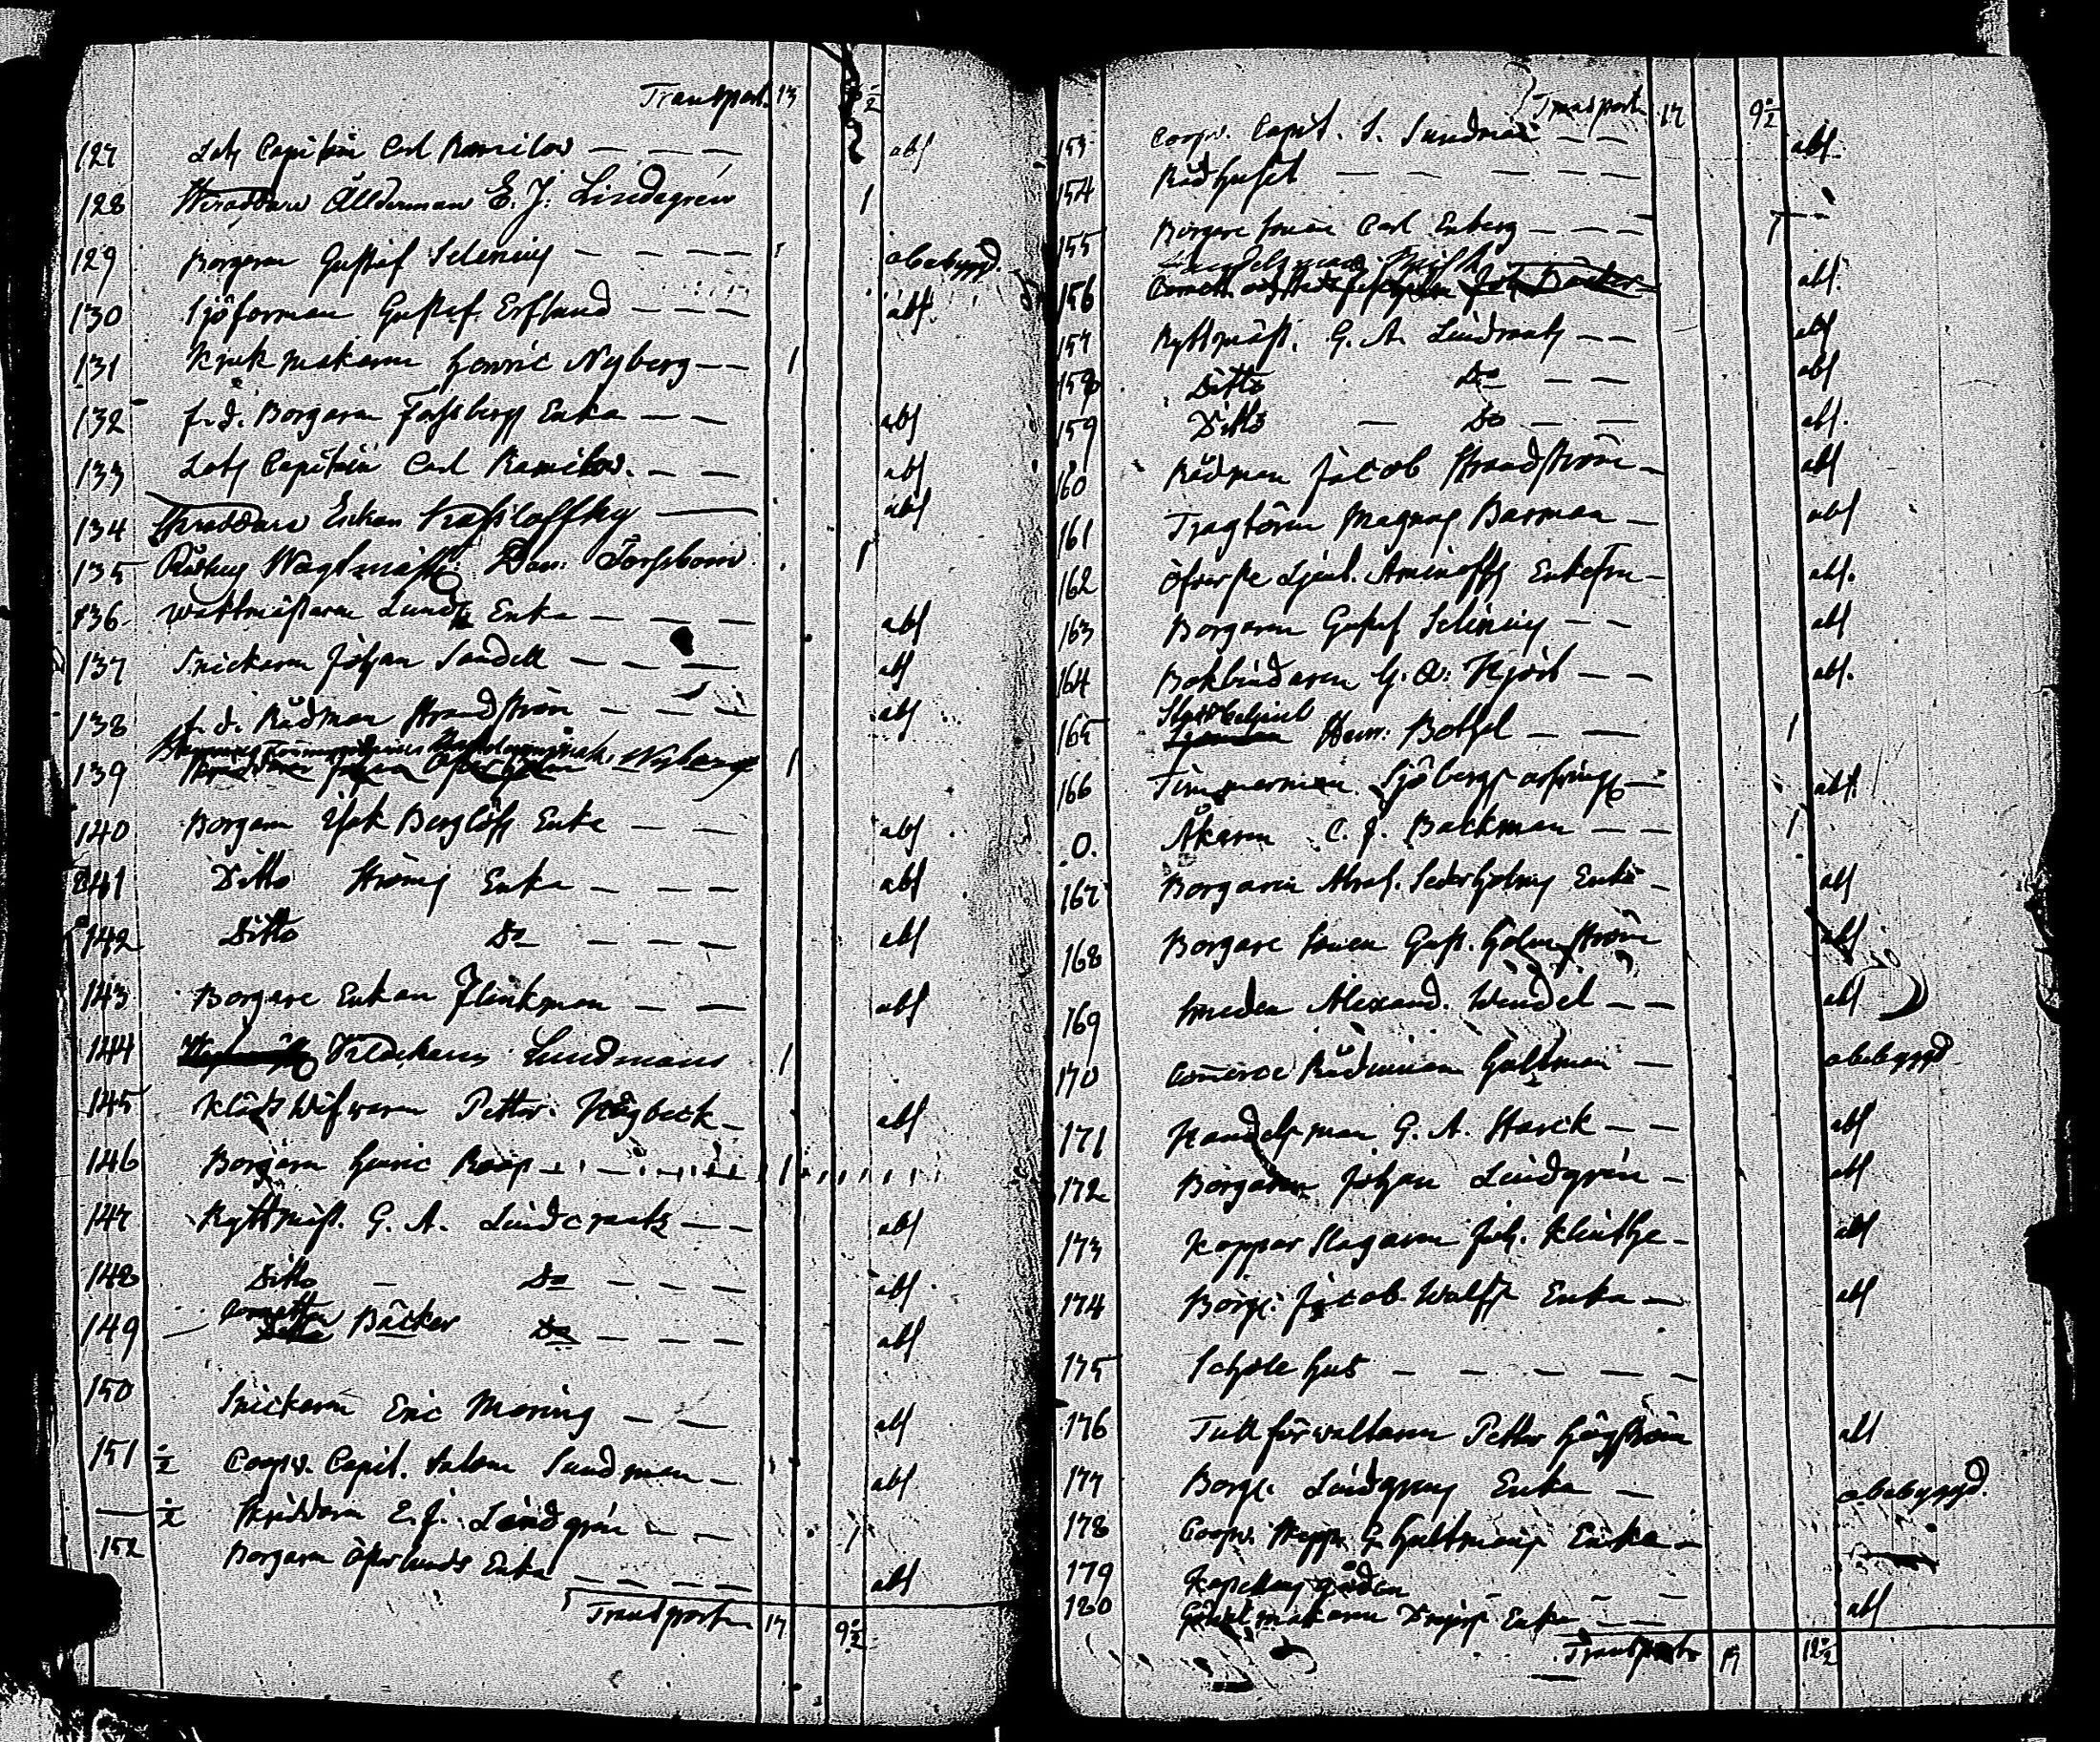 Transport. 13 ½
127 Lots Capitain Carl Ramilow — — — abs
128 Skräddare Ålderman E. J. Lindegren 1
129 Borgaren Gustaf Selenius — — — — obebygd.
130 Sjöforman Gustaf Erflund — — — abs.
131 Krukmakaren Henric Nyberg — — 1
132 f. d. Borgaren Forssbergs Enka — — abs
133 Lots Capitain Carl Ramilow. — — abs
134 Skräddare Enkan — abs
135 Wagtmäst: Dan: Forssbom 1
136 Waktmästaren Lunds Enka — — — abs
137 Snickaren Johan Sandell — — — abs
138 f. d. Rådman Strandström — — — abs
139 Nyberg 1
140 Borgaren Isak Berglöfs Enka — — abs
141 Ditto Ströms Enka — — — abs
142 Ditto Do — — — — abs
143 Borgare Enkan Flinkman — — abs
144 Lundmans 1
145 Klädswäfwaren Petter Högback — abs
146 Borgaren Henric Roos — — — 1
147 Ryttmäst. G. A. Lindcrantz — — abs
148 Ditto — Do — — — abs
149 Cornetten Bäcker Do — — — abs
150 Snickaren Eric Moring — — abs
151 ½ Coopv. Capit. Salom Sundman — abs
— ½ Skräddaren E. J. Lindgrén — — 1
152 Borgaren Österlunds Enka — — — — abs
Transport 17 9½
Transport 17 9½
153 Coopv. Capit. S. Sundman — — abs
154 Rådhuset — — — — —
155 Borgare Sonen Carl Enberg — — — 1
156 Handelsman abs.
157 Ryttmäst. G. A. Lindcrantz — — abs
158 Ditto Do — — abs
159 Ditto — Do — — abs.
160 Rådman Jacob Strandström — abs
161 Tragtören Magnus Barman — abs
162 Öfverste Ljeut. Aminoffs Enkefru — abs.
163 Borgaren Gustaf Selenius — — abs
164 Bokbindaren G. A. Hjört — — abs.
165 Henr: Bothel — — 1
166 Timmerman Sjöbergs arfvingar — abs
0. Åkaren C. J. Backman — — 1
167 Borgaren Abrah. Sederholms Enka — abs
168 Borgare Sonen Gust. Holmström abs
169 Smeden Alexand. Wendel — — abs
170 Comerce Rådinnan Haltman — obebygd
171 Handelsman G. A. Starck — — abs
172 Borgaren Johan Lindgrén — abs
173 Kopparslagaren Joh. Klinthe — abs
174 Borg: Jacob Wulffs Enka — abs
175 Schole hus — — — — —
176 Tullförwaltaren Petter Högström abs
177 Borg: Lindgrens Enka — obebygd.
178 Coopv. Skepp. G Hultmans Enka —
179 Kapellans gården — —
180 makaren Enka — — abs
Transport 17 12½